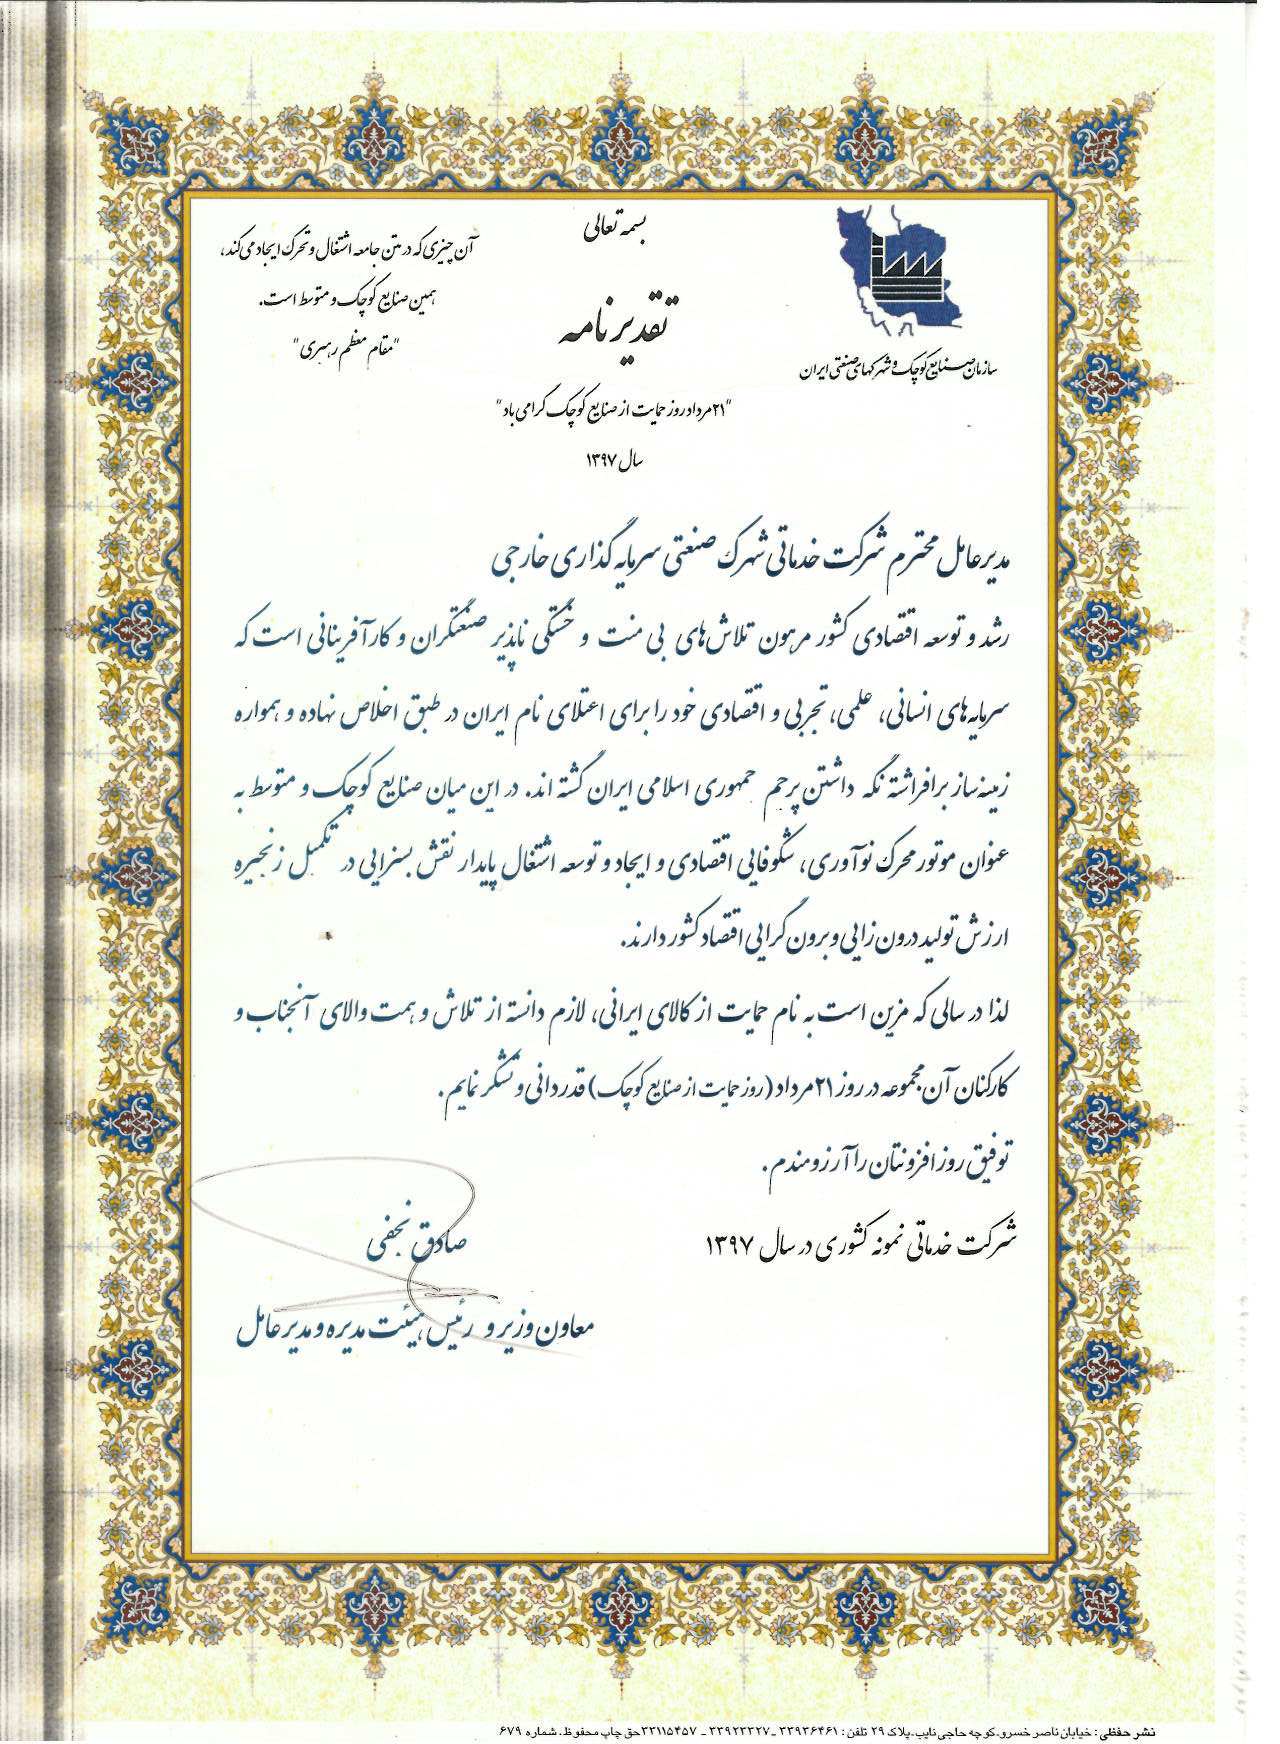 بسمه تعالی
آن چیزی که در متن جامعه اشتغال و تحرک ایجاد می‌کند،
همین صنایع کوچک و متوسط است.
"مقام معظم رهبری"
تقدیرنامه
سازمان صنایع کوچک و شهرکهای صنعتی ایران
"۲۱ مرداد روز حمایت از صنایع کوچک گرامی باد"
سال ۱۳۹۷
مدیرعامل محترم شرکت خدماتی شهرک صنعتی سرمایه گذاری خارجی
رشد و توسعه اقتصادی کشور مرهون تلاش‌های بی منت و خستگی ناپذیر صنعتگران و کارآفرینانی است که
سرمایه‌های انسانی، علمی، تجربی و اقتصادی خود را برای اعتلای نام ایران در طبق اخلاص نهاده و همواره
زمینه‌ساز برافراشته نگه داشتن پرچم جمهوری اسلامی ایران گشته اند. در این میان صنایع کوچک و متوسط به
عنوان موتور محرک نوآوری، شکوفایی اقتصادی و ایجاد و توسعه اشتغال پایدار نقش بسزایی در تکمیل زنجیره
ارزش تولید درون زایی و برون گرایی اقتصاد کشور دارند.
لذا در سالی که مزین است به نام حمایت از کالای ایرانی، لازم دانسته از تلاش و همت والای آنجناب و
کارکنان آن مجموعه در روز ۲۱ مرداد (روز حمایت از صنایع کوچک) قدردانی و تشکر نمایم.
توفیق روز افزونتان را آرزومندم.
شرکت خدماتی نمونه کشوری در سال ۱۳۹۷
صادق نجفی
معاون وزیر و رئیس هیئت مدیره و مدیرعامل
نشر حفظی : خیابان ناصر خسرو-کوچه حاجی نایب-پلاک ۲۹ تلفن : ۳۳۹۳۶۴۶۱ - ۳۳۹۲۳۳۲۷ - ۳۳۱۱۵۴۵۷ حق چاپ محفوظ. شماره ۶۷۹